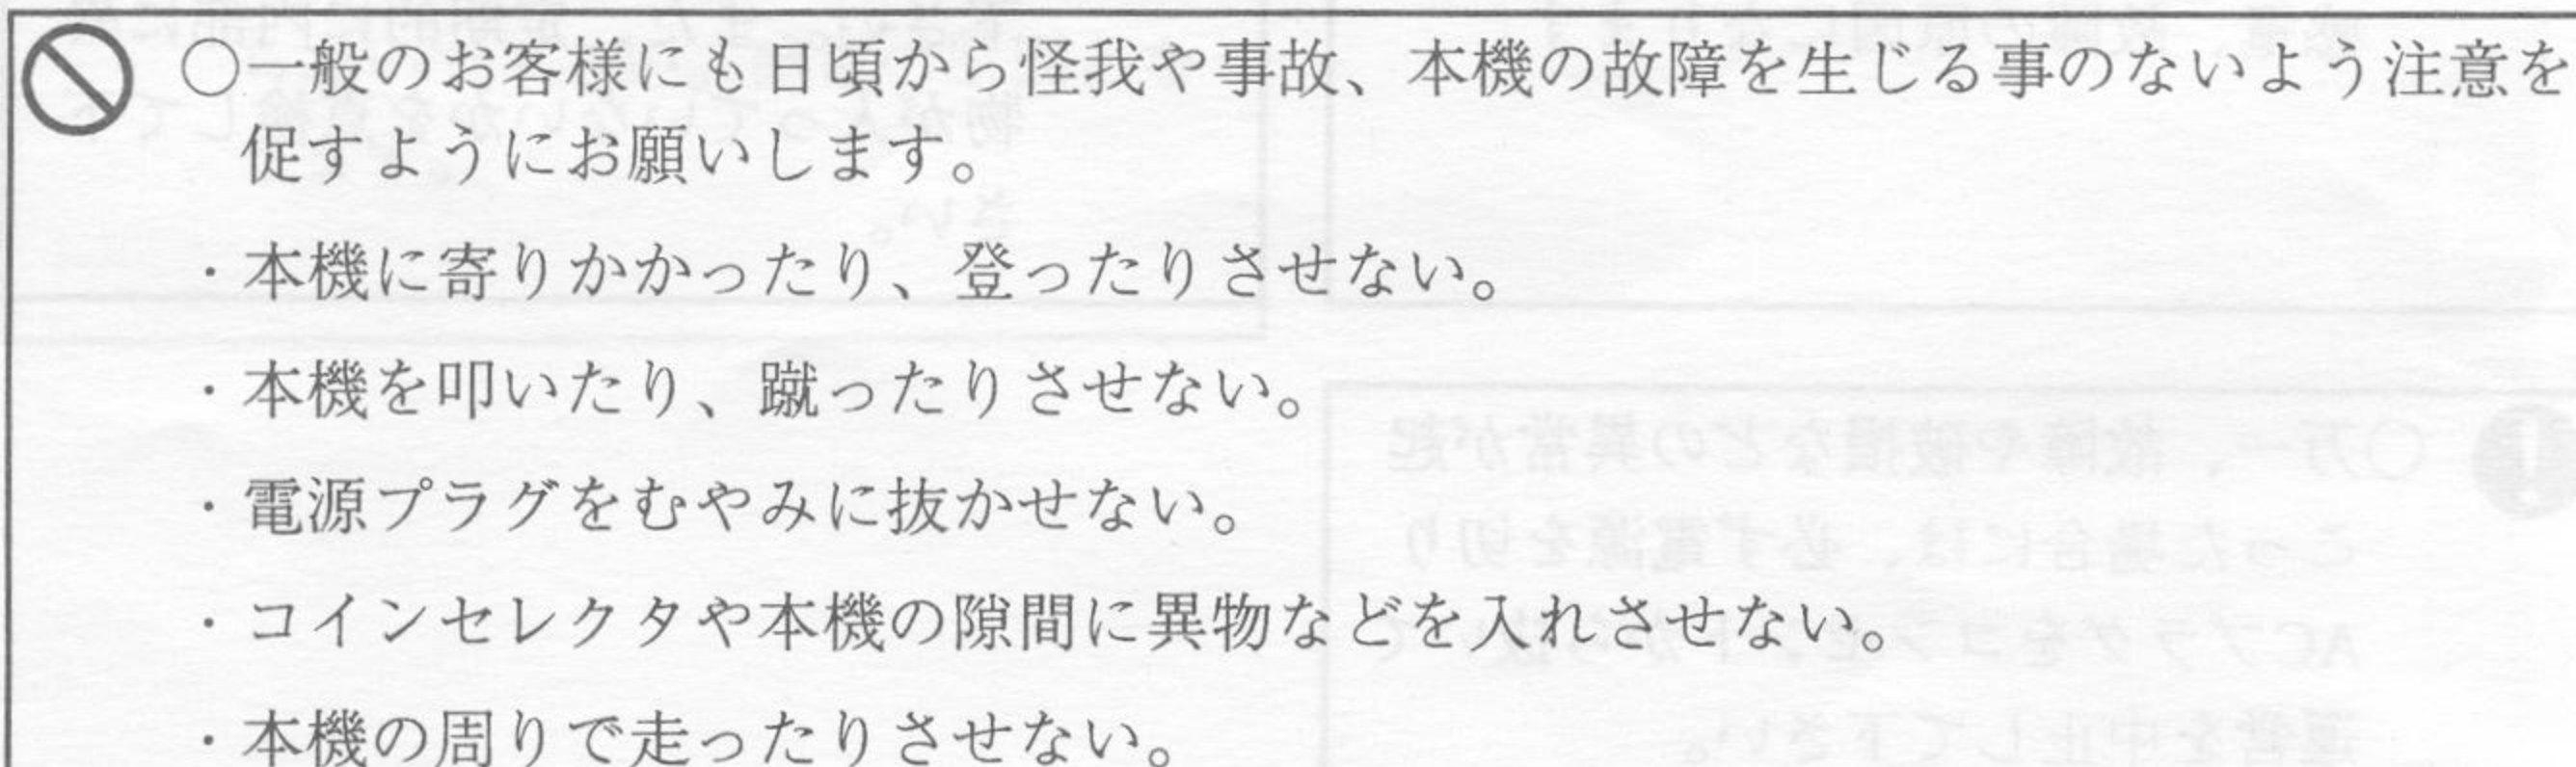 ○一般のお客様にも日頃から怪我や事故、本機の故障を生じる事のないよう注意を
促すようにお願いします。
・本機に寄りかかったり、登ったりさせない。
・本機を叩いたり、蹴ったりさせない。
・電源プラグをむやみに抜かせない。
・コインセレクタや本機の隙間に異物などを入れさせない。
・本機の周りで走ったりさせない。